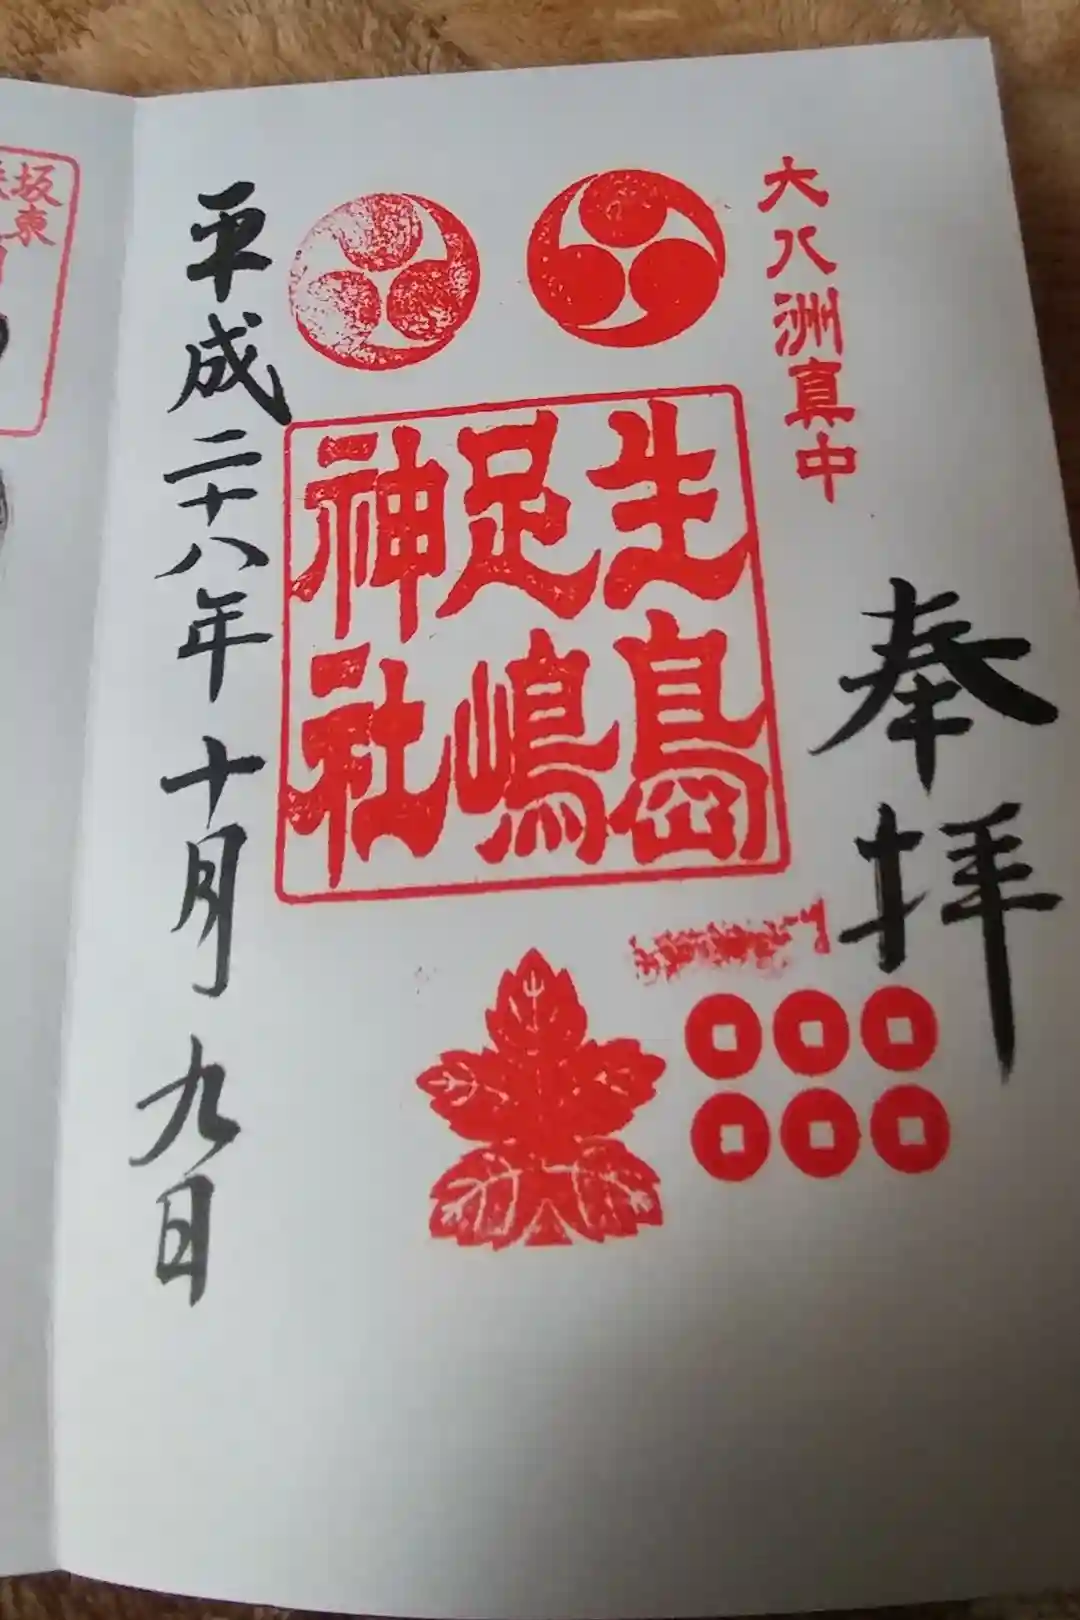 大八洲真中
奉拝
生島
足嶋
神社
平成二十八年十月九日
坂東